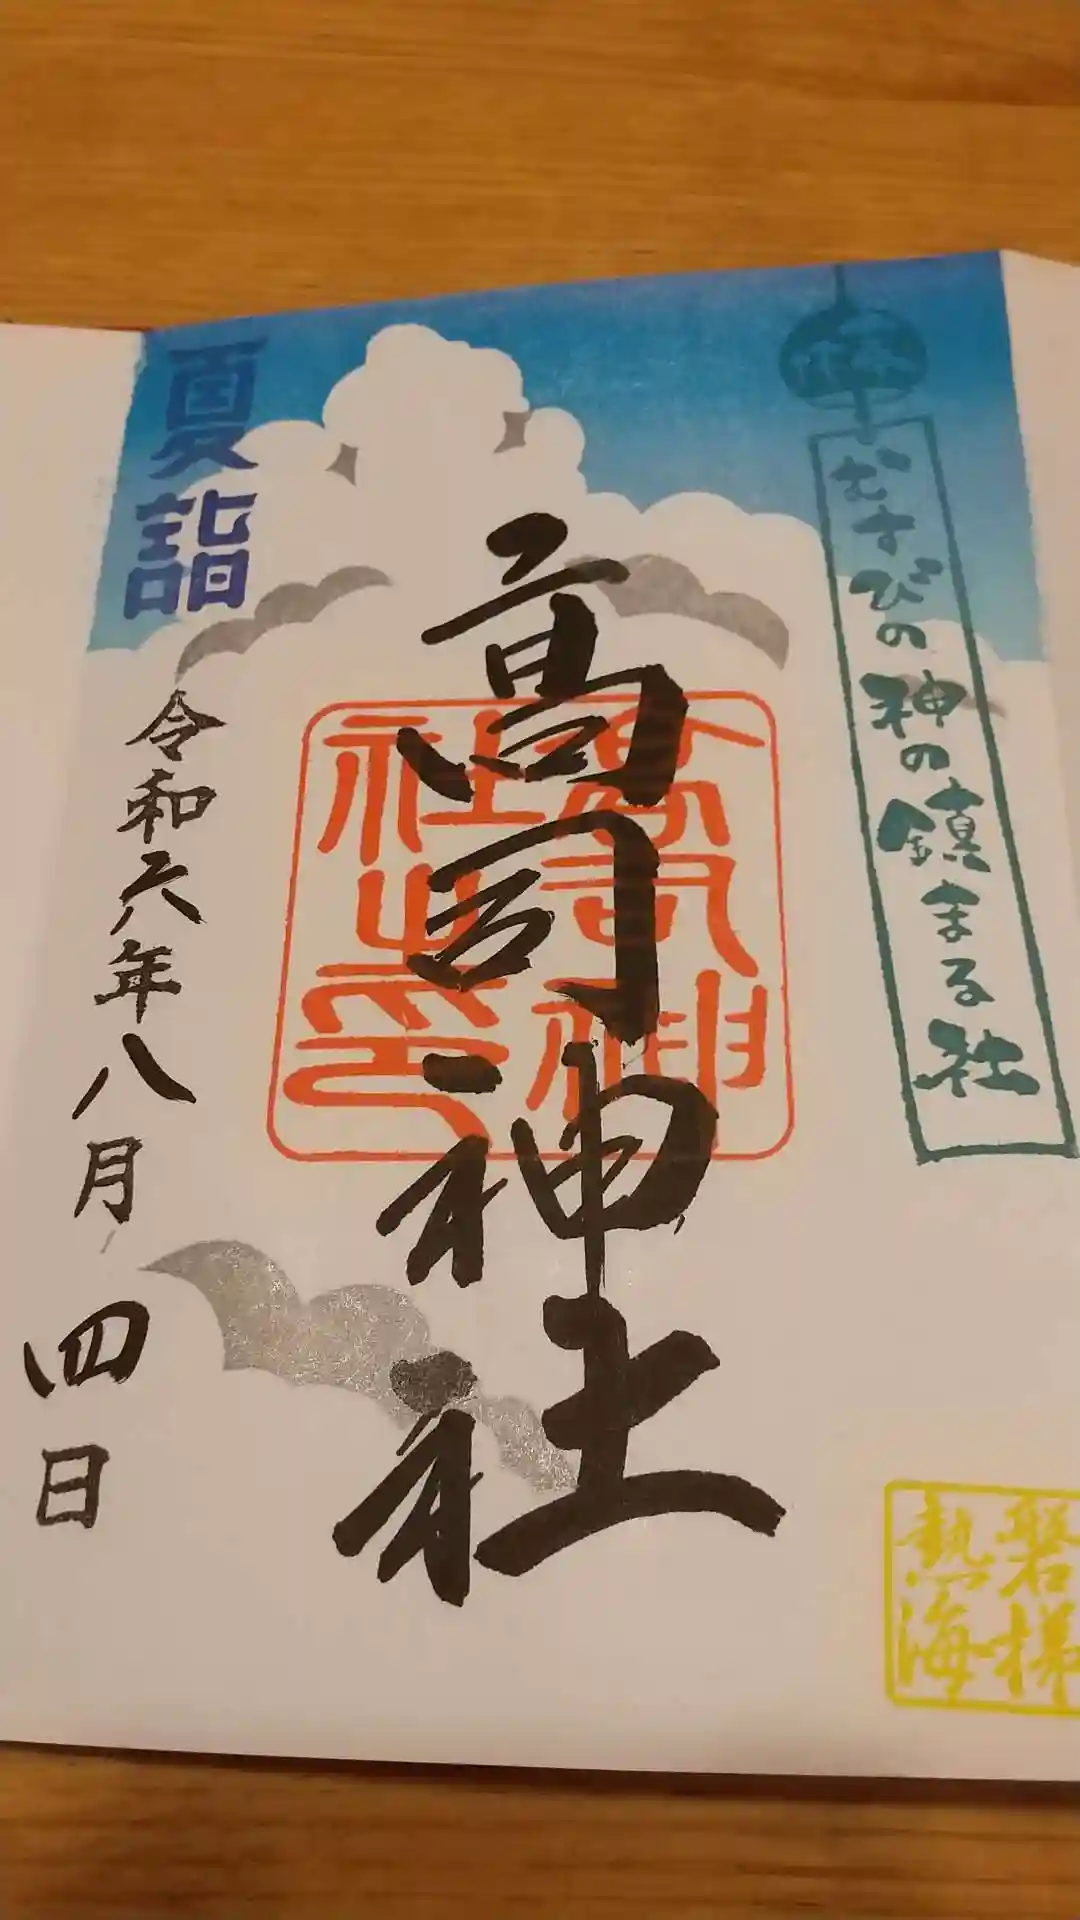 縁
むすびの神の鎮まる社
磐梯
熱海
高司神社
高司神
社之印
夏詣
令和六年八月四日